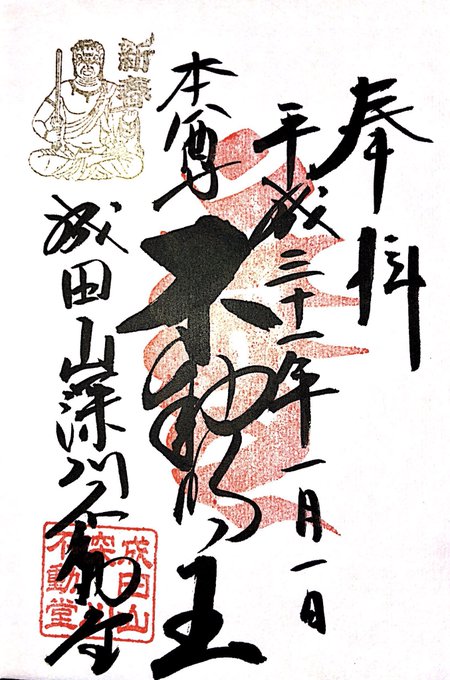 奉拝
平成三十一年一月一日
本尊
不動明王
成田山深川不動堂
新春
成田山
深川
不動堂